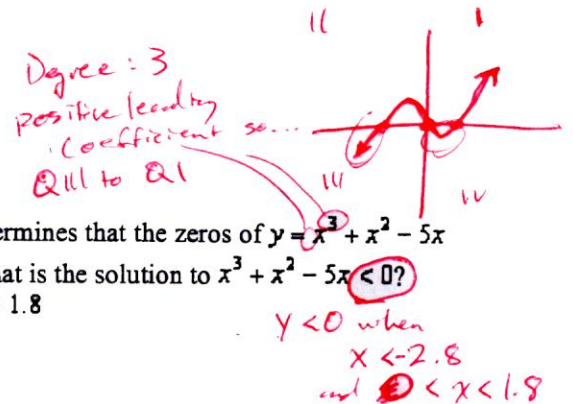 II I
Degree: 3
positive leading
coefficient so...
QIII to QI
III IV
ermines that the zeros of y = x³ + x² – 5x
nat is the solution to x³ + x² – 5x < 0?
1.8
y < 0 when
x < -2.8
and 0 < x < 1.8